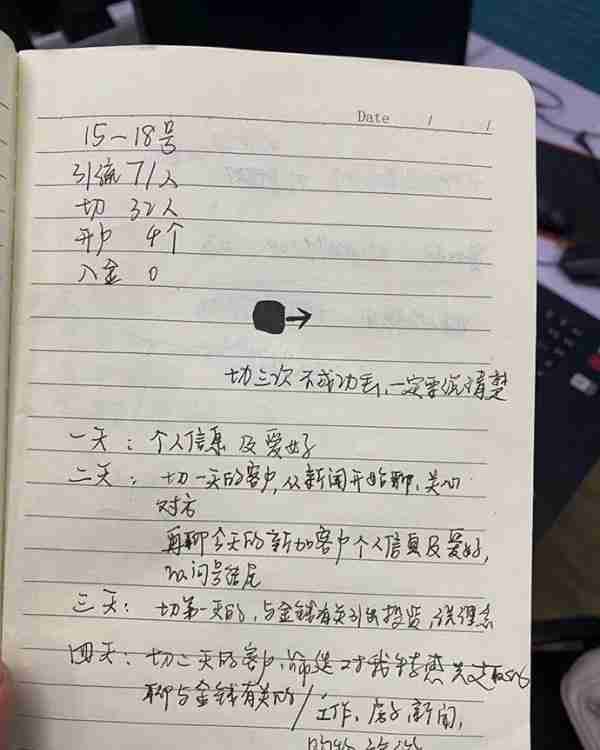 Date / /
15～18号
引流71人
切 32人
开户 4个
入金 0
切三次不成功丢，一定要说清楚
一天：个人信息及爱好
二天：切一天的客户，从新闻开始聊，关心
对方
再聊今天的新加客户个人信息及爱好，
以问号结尾
三天：切第一天的，与金钱有关引出投资，说理念
四天：切二天的客户，筛选对我
聊与金钱有关的/工作、房子、新闻，